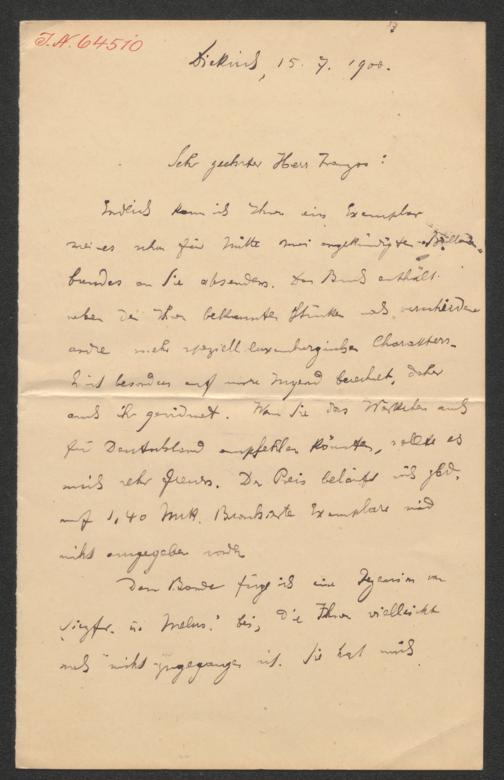 I.N. 64510
Diekirch, 15. 7. 1900.
Sehr geehrter Herr Franzos!
Endlich kann ich Ihnen ein Exemplar
meines schon für Mitte Mai angekündigten Balladen-
bandes an Sie absenden. Das Buch enthält
neben den Ihnen bekannten Stücken noch verschiedene
andre mehr speziell luxemburgischen Charakters.
Es ist besonders auf unsre Jugend berechnet, daher
auch ihr gewidmet. Wenn Sie das Werkchen auch
für Deutschland empfehlen könnten, sollte es
mich sehr freuen. Der Preis beläuft sich
auf 1,40 Mrk. Broschierte Exemplare sind
nicht ausgegeben
Dem Bande füge ich eine Rezension von
"Siegfr. u. Melus." bei, die Ihnen vielleicht
noch nicht zugegangen ist. Sie hat mich